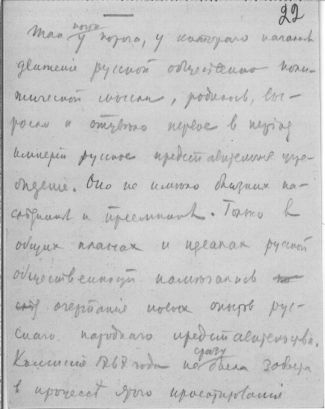 22
пока
Так у порога, у которого начались
движения русской общественно поли-
тической мысли, родилось, вы-
росло и отцвело первое в период
империи русское представительное учре-
ждение. Оно не имело близких на-
следников и преемников. Только в
общих планах и идеалах русской
общественности намечались
очертания новых опытов рус-
скаго народнаго представительства.
сразу
Комиссия 1767 года не была забыта
в процессе этого проектирования